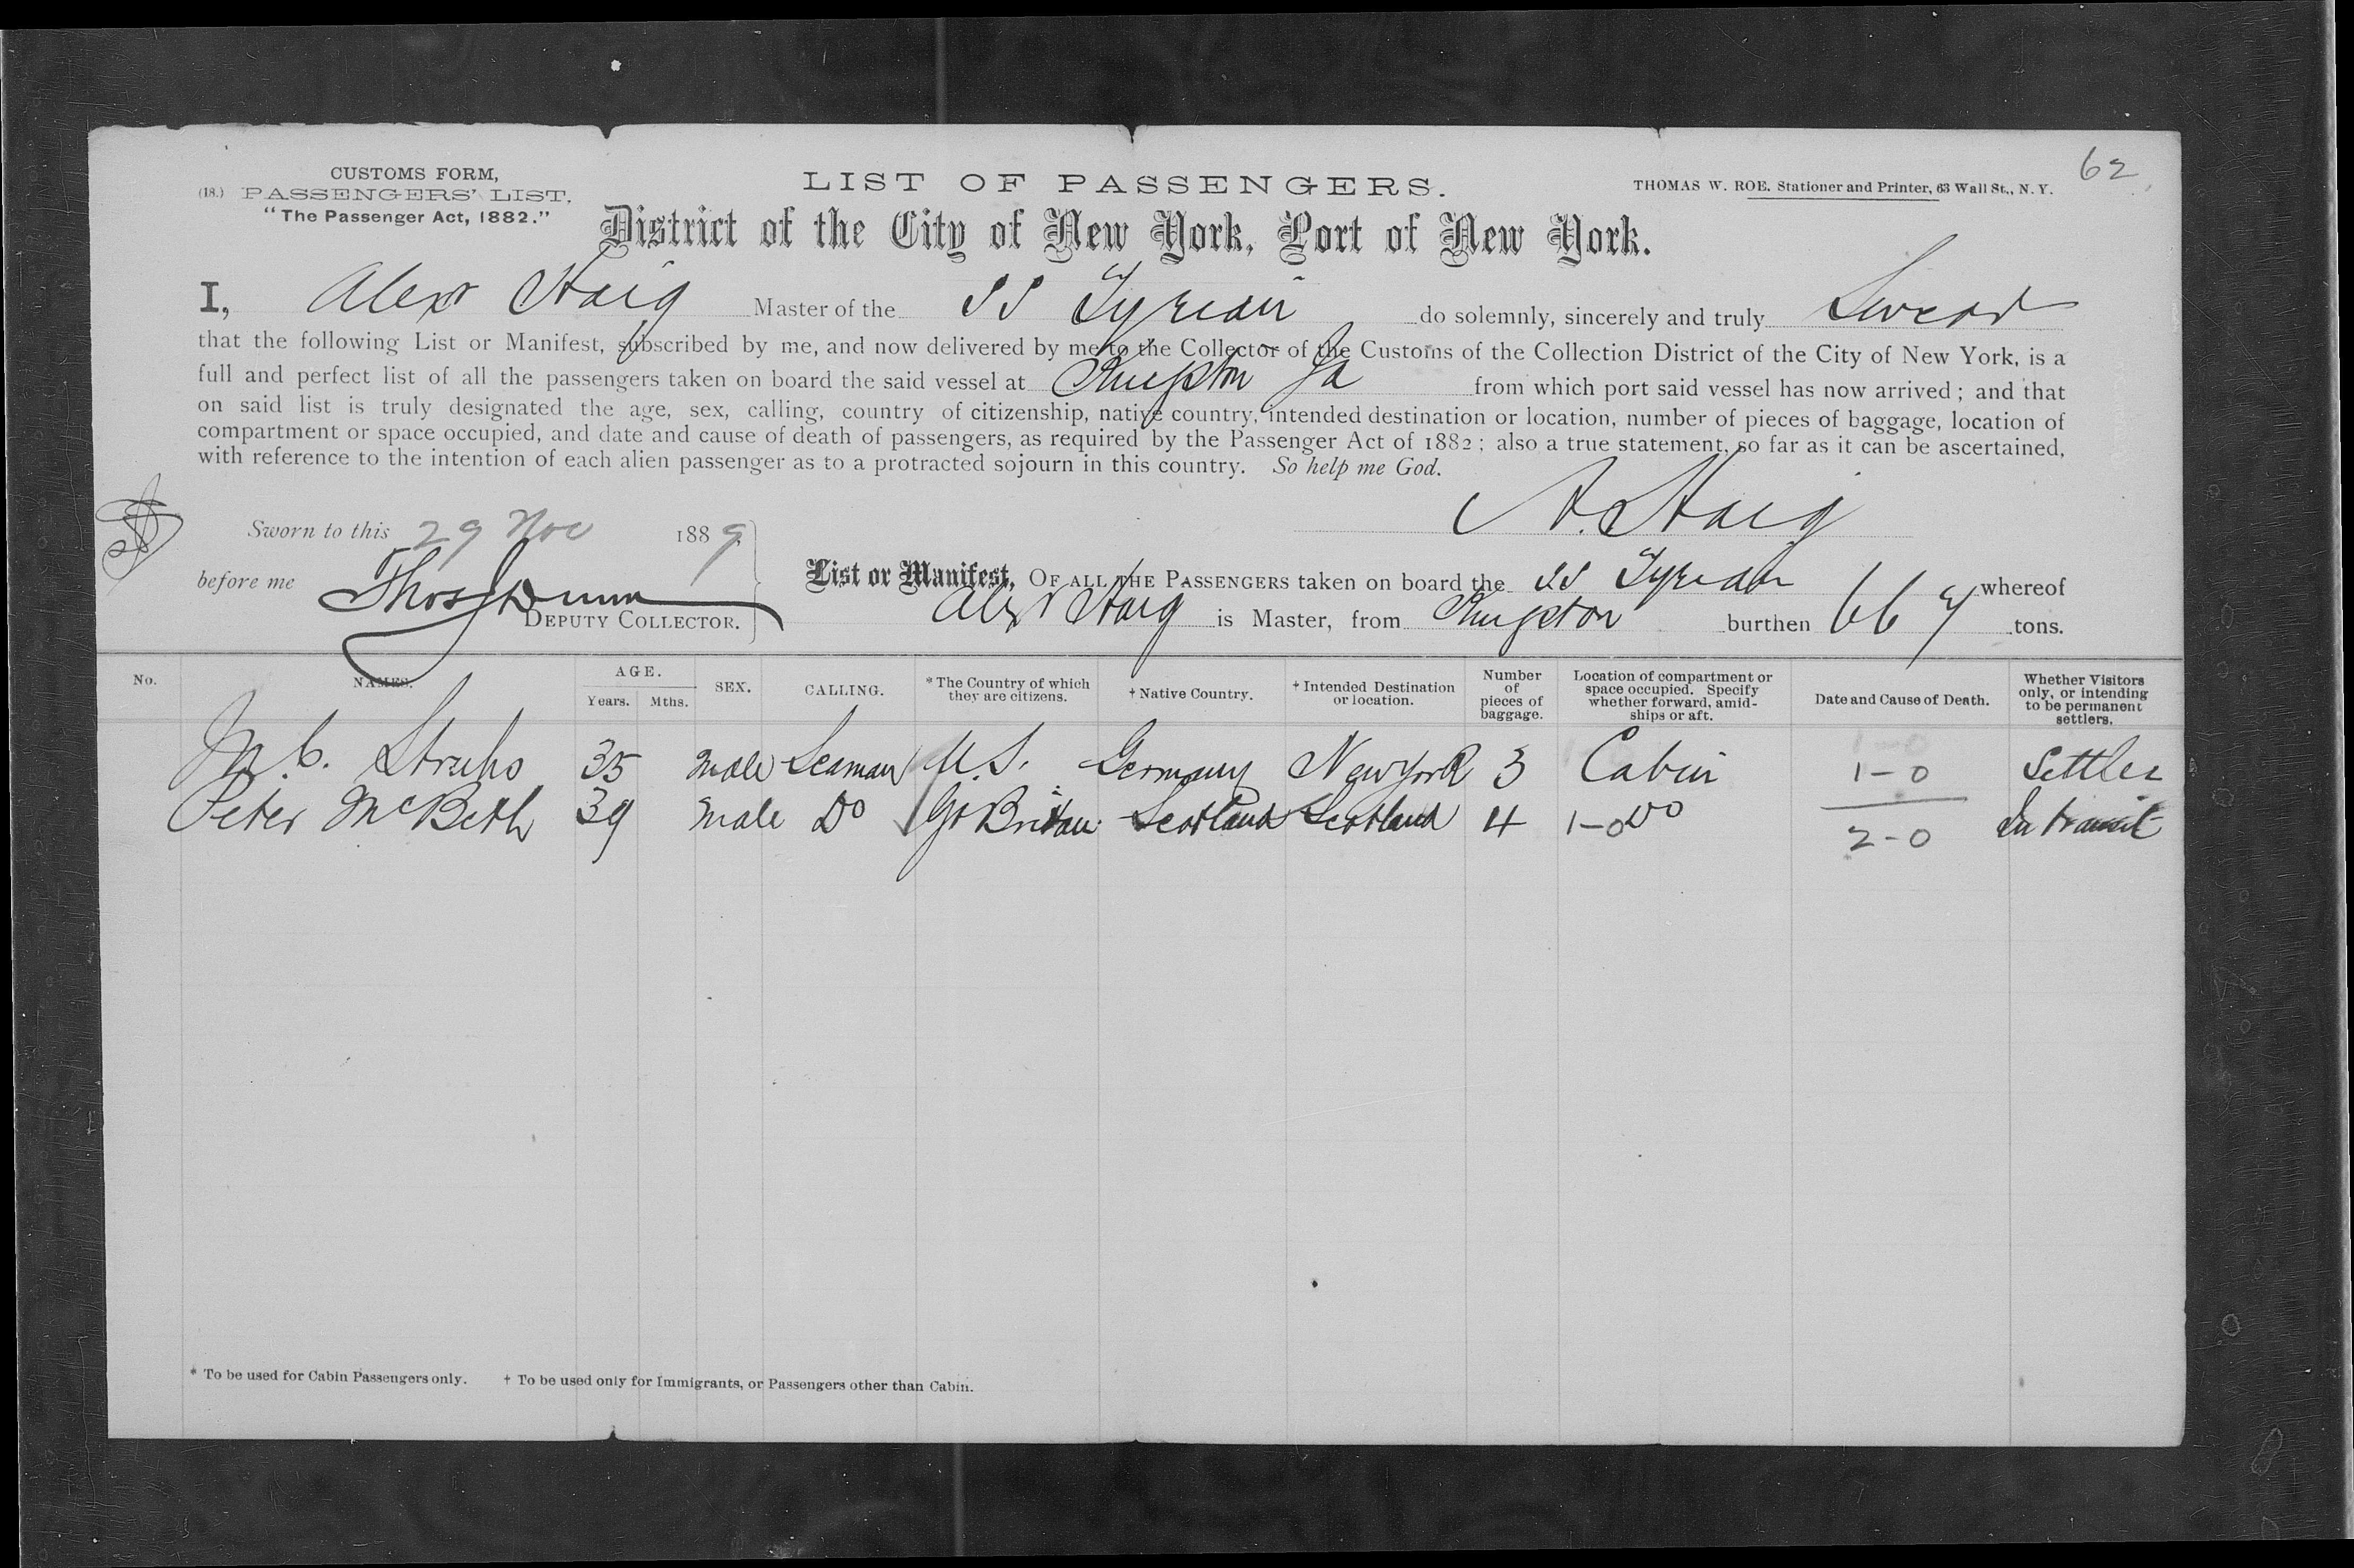 62
CUSTOMS FORM,
(18.) PASSENGERS' LIST.
"The Passenger Act, 1882."
LIST OF PASSENGERS.
THOMAS W. ROE. Stationer and Printer, 63 Wall St., N. Y.
District of the City of New York, Port of New York.
I, Alexr Haig Master of the SS Tyrian do solemnly, sincerely and truly Swear
that the following List or Manifest, subscribed by me, and now delivered by me to the Collector of the Customs of the Collection District of the City of New York, is a
full and perfect list of all the passengers taken on board the said vessel at Kingston Ja from which port said vessel has now arrived; and that
on said list is truly designated the age, sex, calling, country of citizenship, native country, intended destination or location, number of pieces of baggage, location of
compartment or space occupied, and date and cause of death of passengers, as required by the Passenger Act of 1882; also a true statement, so far as it can be ascertained,
with reference to the intention of each alien passenger as to a protracted sojourn in this country. So help me God.
A. Haig
Sworn to this 29 Nov 1889
before me Thos Dunn
DEPUTY COLLECTOR.
List or Manifest, OF ALL THE PASSENGERS taken on board the SS Tyrian whereof
Alexr Haig is Master, from Kingston burthen 667 tons.
No. NAMES. AGE. Years. Mths. SEX. CALLING. * The Country of which they are citizens. † Native Country. † Intended Destination or location. Number of pieces of baggage. Location of compartment or space occupied. Specify whether forward, amidships or aft. Date and Cause of Death. Whether Visitors only, or intending to be permanent settlers.
M. C. Struhs 35 male Seaman U.S. Germany New York 3 Cabin 1-0 Settler
Peter McBeth 39 male Do Gt Britain Scotland Scotland 4 1-0 Do 2-0 In transit
* To be used for Cabin Passengers only. † To be used only for Immigrants, or Passengers other than Cabin.